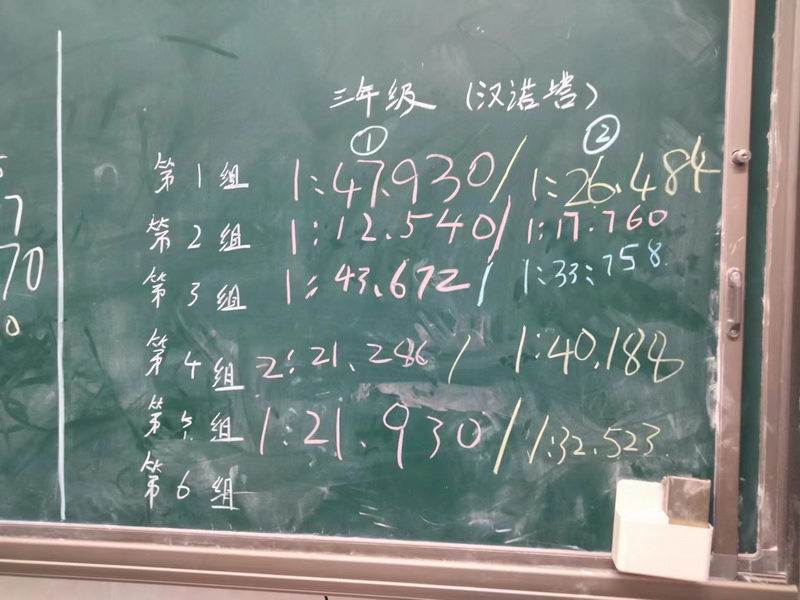 三年级（汉诺塔）
① ②
第1组 1:47.930/1:26.484
第2组 1:12.540/1:17.760
第3组 1:43.672/1:33:758
第4组 2:21.286/1:40.188
第5组 1:21.930/1:32.523
第6组
7
70
0